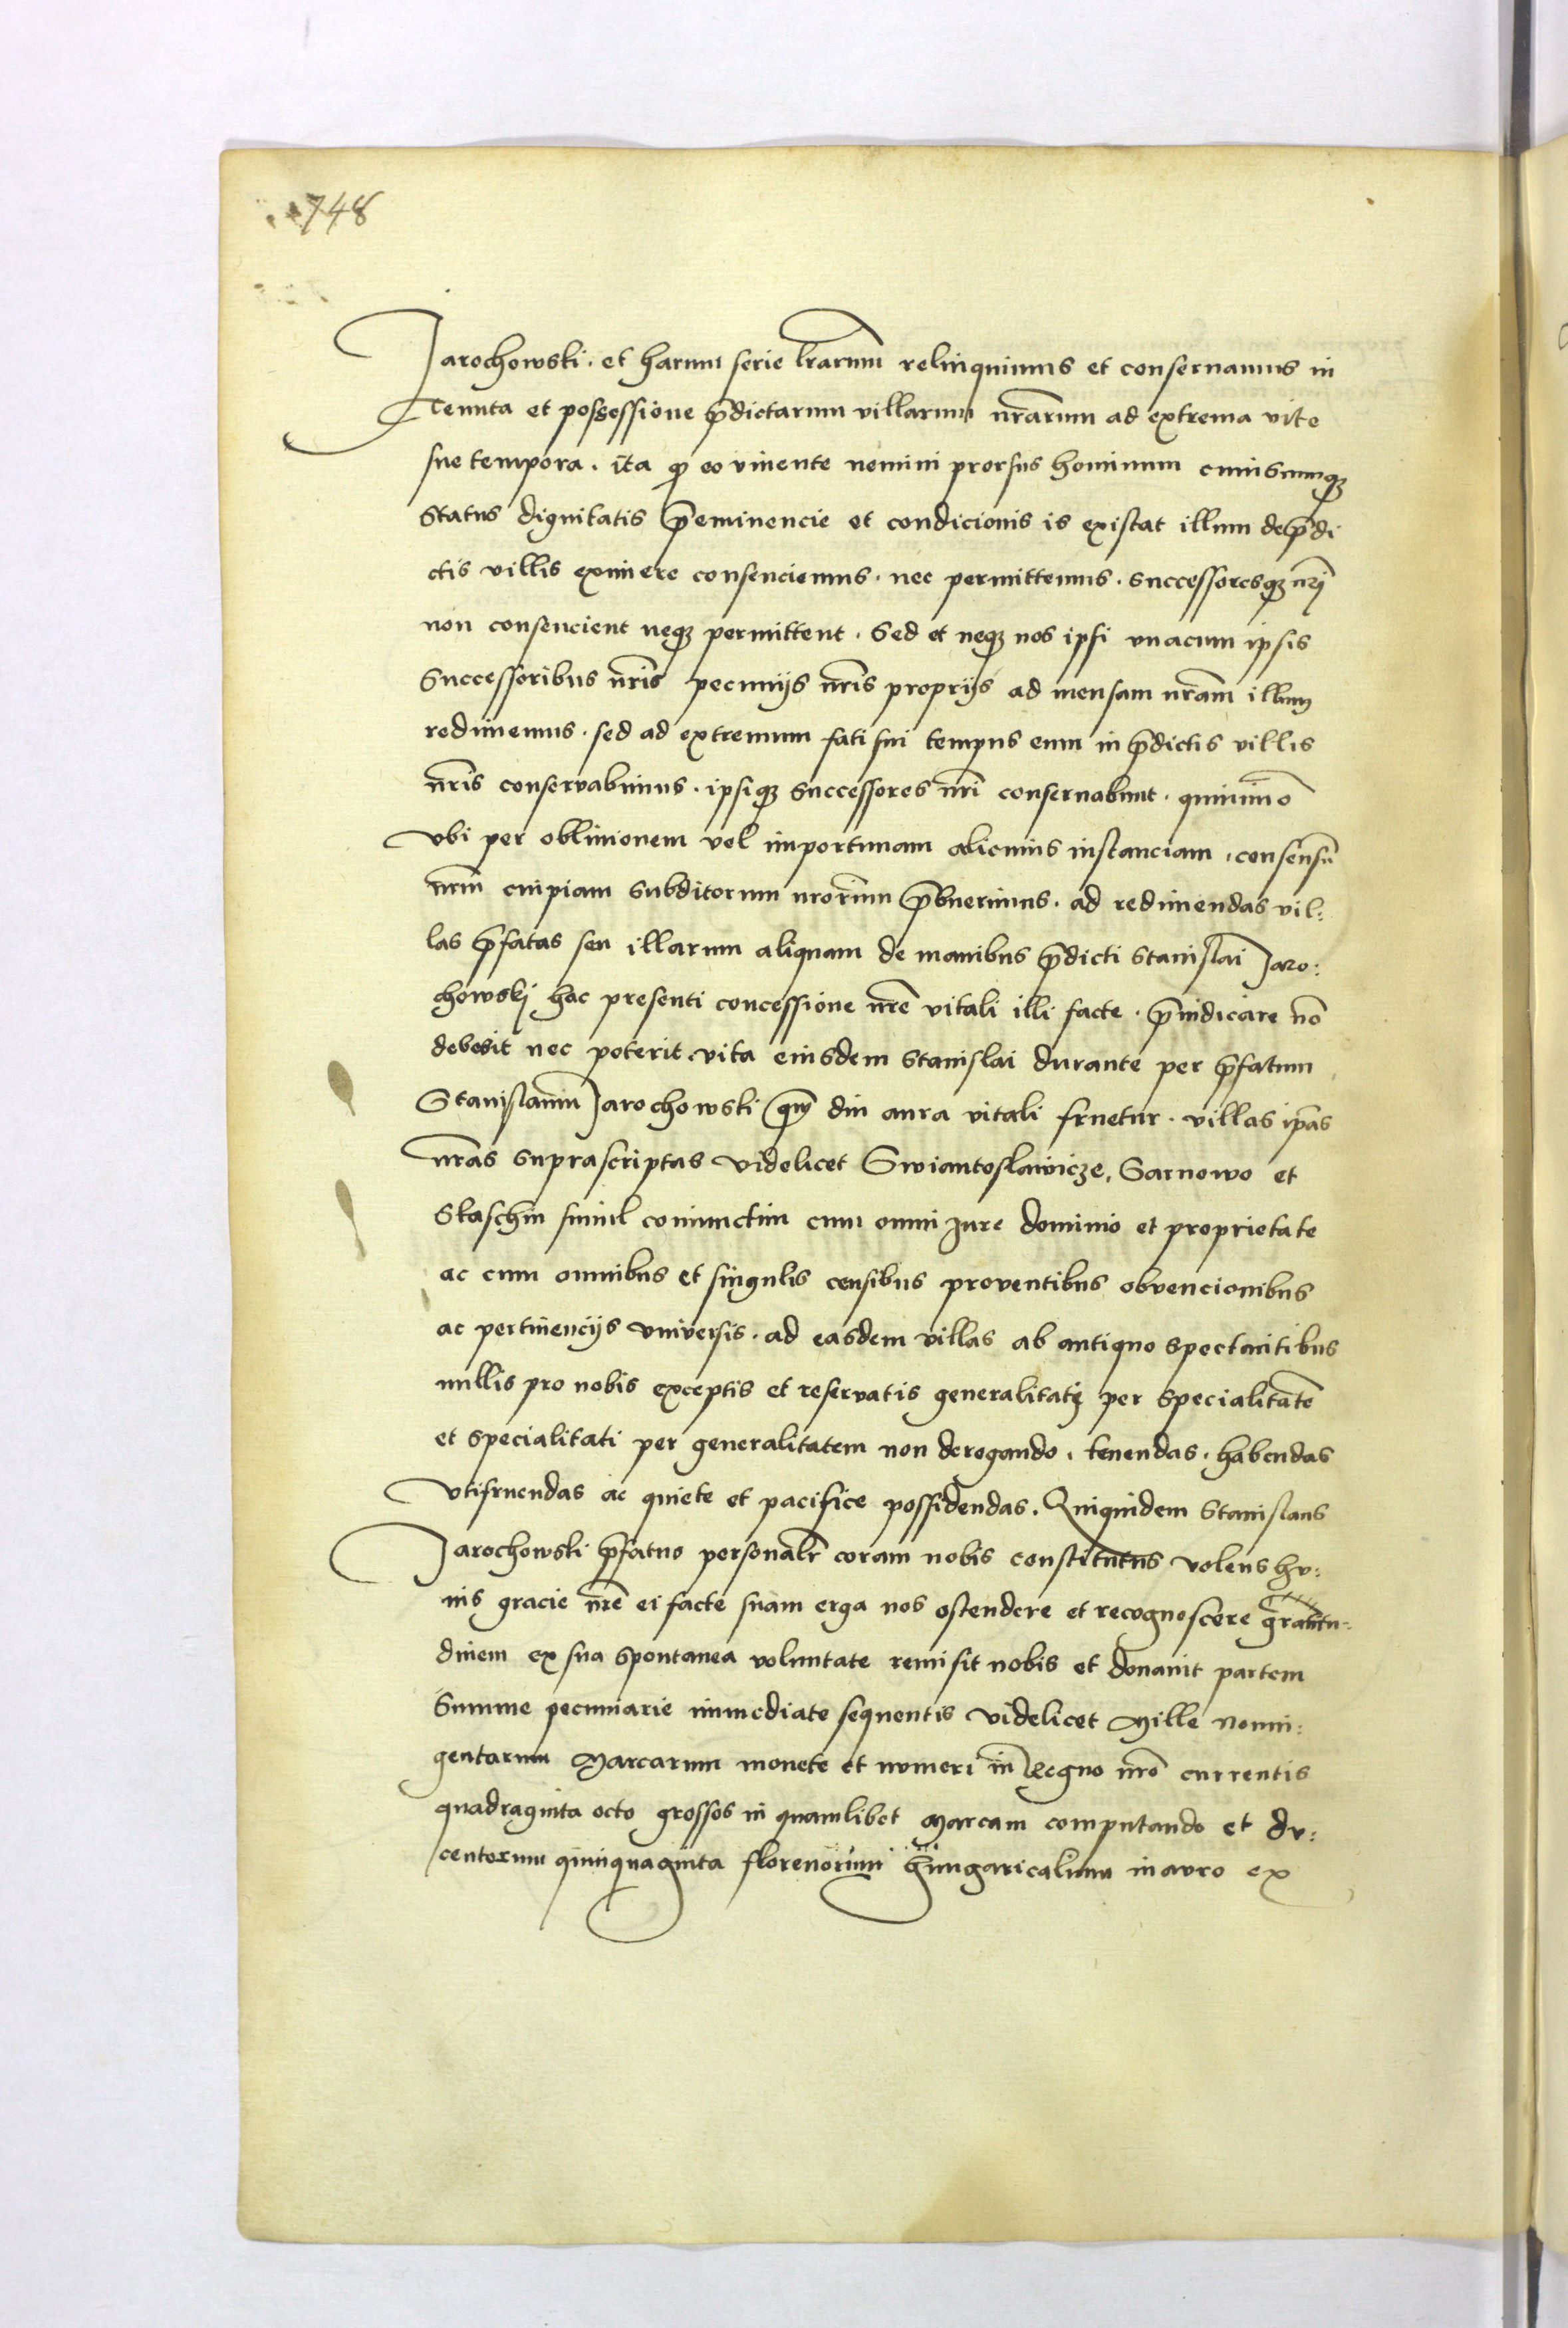 748
Jarochowski. et harum serie lrarum relinquimus et conseruamus in
Tenuta et possessione pdictarum villarum nrarum ad extrema vite
sue tempora. ita q eo viuente nemini prorsus hominum cuiuscumq
status dignitatis peminencie et condicionis is existat illum de pdi
ctis villis eximere consenciemus. nec permittemus. successoresq nri
non consencient neq permittent. Sed et neq nos ipsi vnacum ipsis
Successoribus nris pecunijs nris proprijs ad mensam nram illum
redimemus. sed ad extremum fati sui tempus eum in pdictis villis
nris conservabimus. ipsiq Successores nri conseruabunt. quinimo
vbi per obliuionem vel importunam alicuius instanciam, consensu
nrm cuipiam subditorum nrorum pbuerimus. ad redimendas vil:
las pfatas seu illarum aliquam de manibus pdicti Stanislai Jaro:
chowskj hac presenti concessione nre vitali illi facte. piudicare no
debebit nec poterit vita eiusdem Stanislai durante per pfatum
Stanislaum Jarochowski qm diu aura vitali fruetur. villas ipas
nras suprascriptas videlicet Swiantoslawicze, Sarnowo et
Staschin simul coniunctim cum omni Jure dominio et proprietate
ac cum omnibus et singulis censibus proventibus obvencionibus
ac pertinencijs vniversis. ad easdem villas ab antiquo spectantibus
nullis pro nobis exceptis et reservatis generalitati per specialitate
et specialitati per generalitatem non derogando. tenendas. habendas
vtifruendas ac quiete et pacifice possidendas. Quiquidem Stanislaus
Jarochowski pfatus personalr coram nobis constitutus volens hu:
ius gracie nre ei facte suam erga nos ostendere et recognoscere gratitu-
dinem ex sua spontanea voluntate remisit nobis et donauit partem
Summe pecuniarie immediate sequentis videlicet Mille nonin:
gentarum Marcarum monete et numeri in Regno nro currentis
quadraginta octo grossos in quamlibet Marcam computando et du:
centorum quinquaginta florenorum Hungaricalium in auro ex